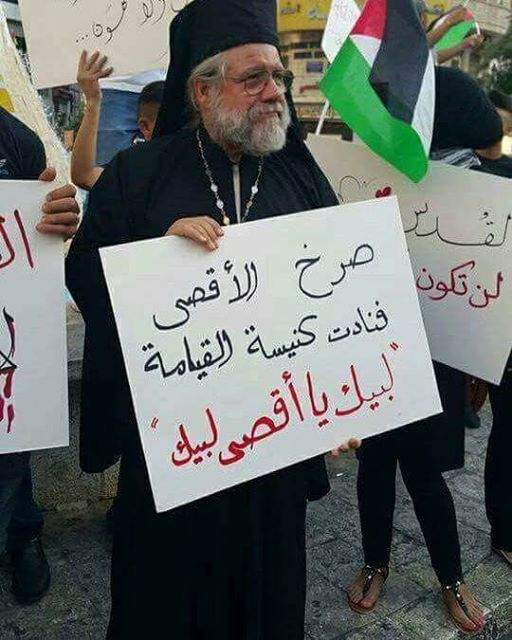 صرخ الأقصى
فنادت كنيسة القيامة
"لبيك يا أقصى لبيك"
القدس
لن تكون